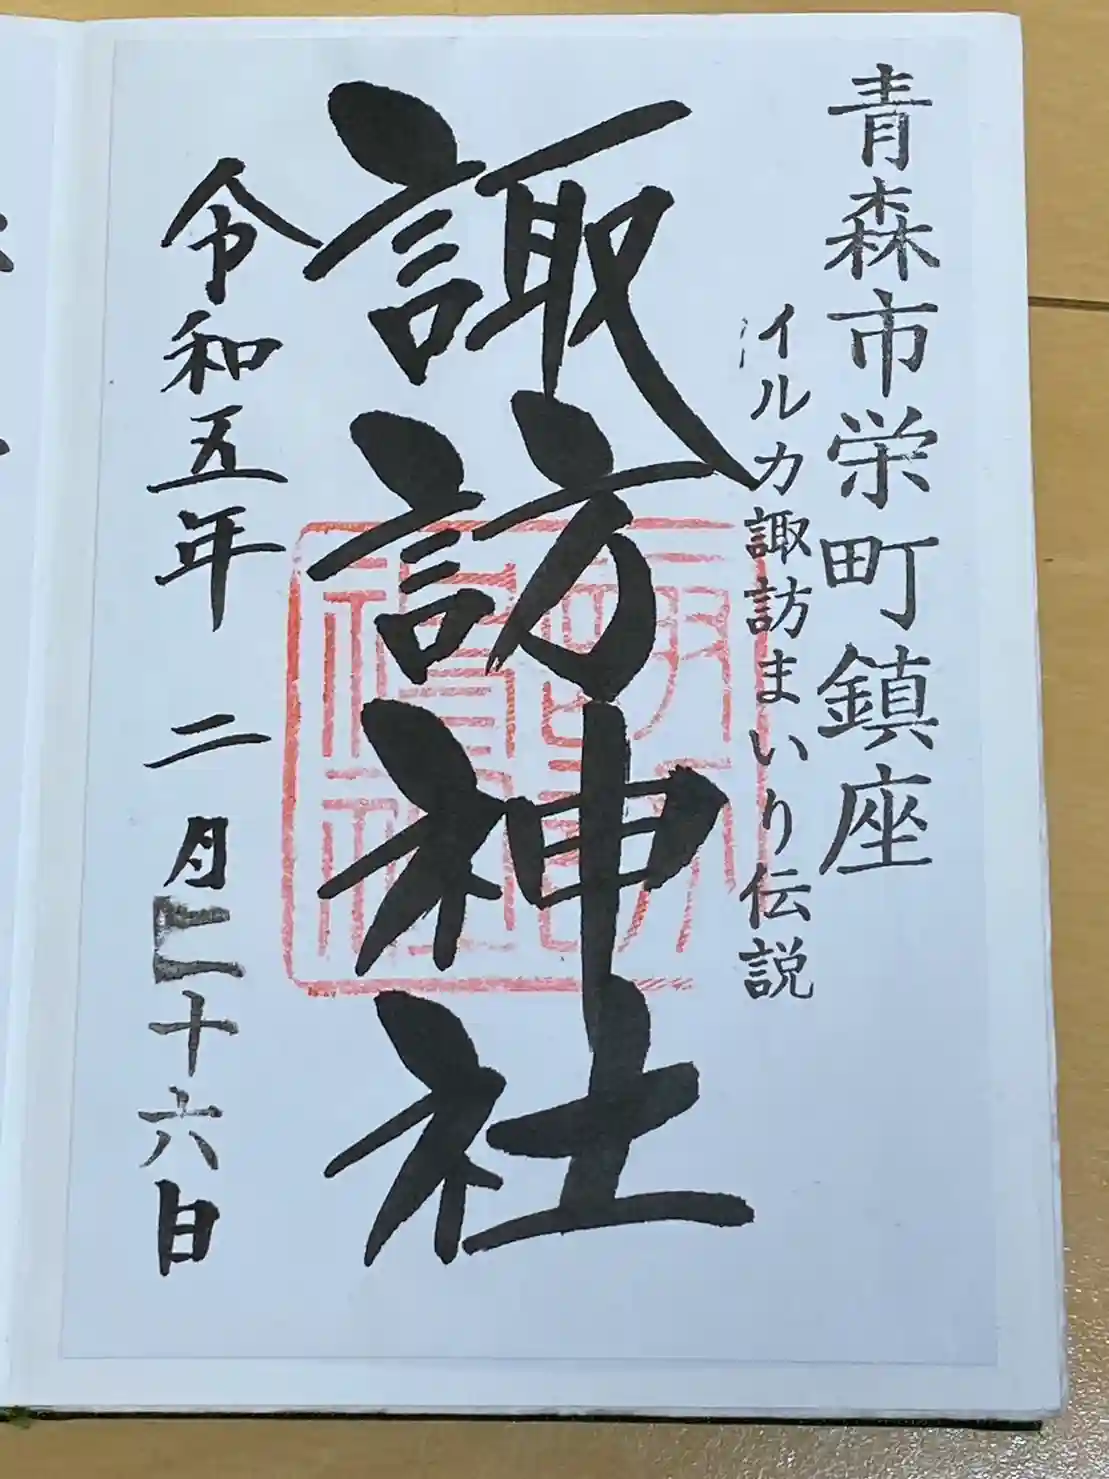 青森市栄町鎮座
イルカ諏訪まいり伝説
諏訪神社
令和五年 二月二十六日